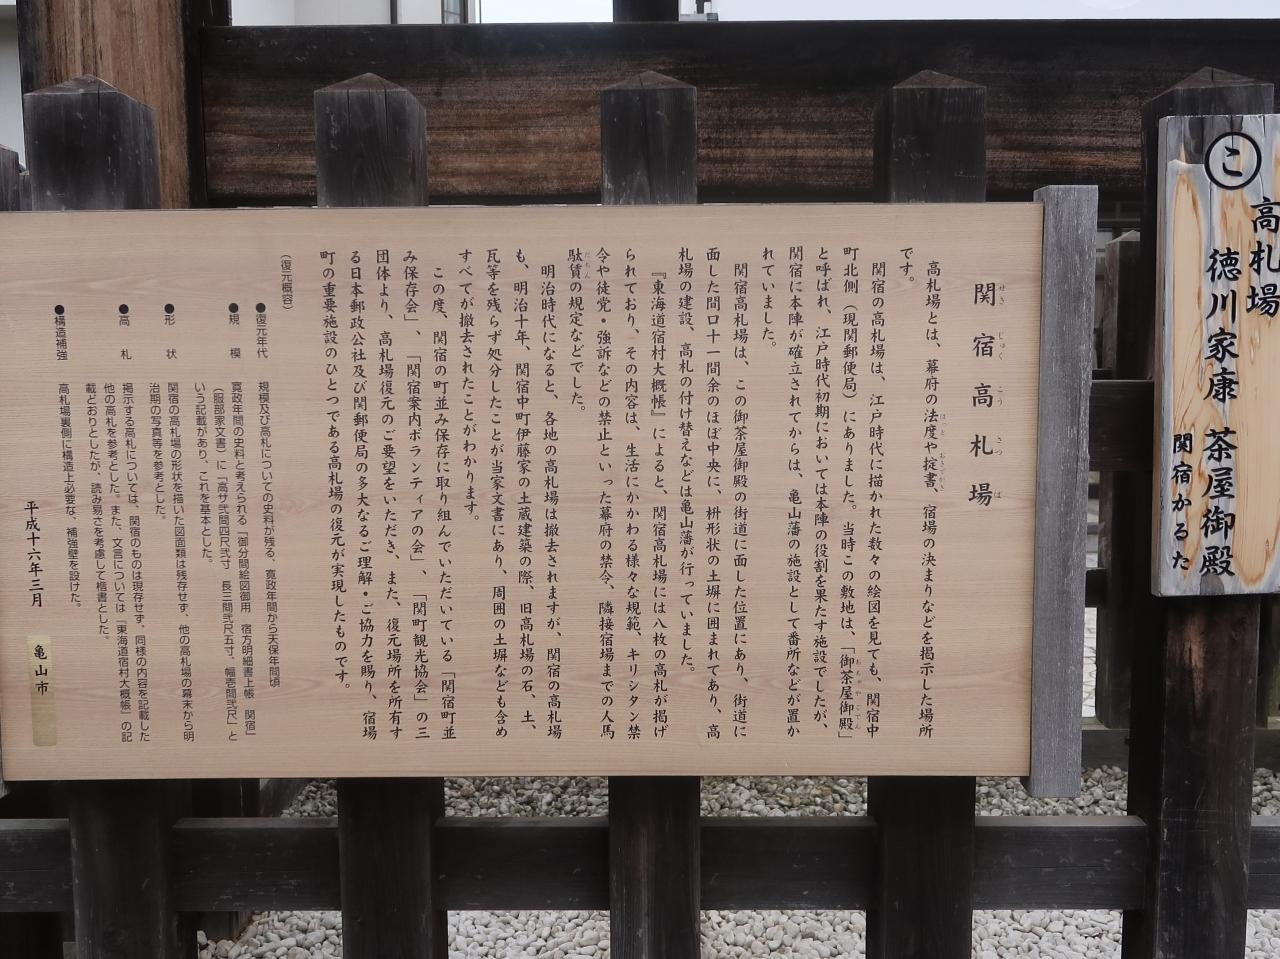 こ
高札場
徳川家康 茶屋御殿
関宿かるた
関宿高札場
せき じゅく こう さつ ば
高札場とは、幕府の法度や掟書、宿場の決まりなどを掲示した場所
はっと おきてがき
です。
関宿の高札場は、江戸時代に描かれた数々の絵図を見ても、関宿中
町北側（現関郵便局）にありました。当時この敷地は、「御茶屋御殿」
おちゃやごてん
と呼ばれ、江戸時代初期においては本陣の役割を果たす施設でしたが、
関宿に本陣が確立されてからは、亀山藩の施設として番所などが置か
れていました。
関宿高札場は、この御茶屋御殿の街道に面した位置にあり、街道に
面した間口十一間余のほぼ中央に、枡形状の土塀に囲まれてあり、高
札場の建設、高札の付け替えなどは亀山藩が行っていました。
『東海道宿村大概帳』によると、関宿高札場には八枚の高札が掲げ
られており、その内容は、生活にかかわる様々な規範、キリシタン禁
令や徒党・強訴などの禁止といった幕府の禁令、隣接宿場までの人馬
駄賃の規定などでした。
だちん
明治時代になると、各地の高札場は撤去されますが、関宿の高札場
も、明治十年、関宿中町伊藤家の土蔵建築の際、旧高札場の石、土、
瓦等を残らず処分したことが当家文書にあり、周囲の土塀なども含め
すべてが撤去されたことがわかります。
この度、関宿の町並み保存に取り組んでいただいている「関宿町並
み保存会」、「関宿案内ボランティアの会」、「関町観光協会」の三
団体より、高札場復元のご要望をいただき、また、復元場所を所有す
る日本郵政公社及び関郵便局の多大なるご理解・ご協力を賜り、宿場
町の重要施設のひとつである高札場の復元が実現したものです。
（復元概容）
●復元年代 規模及び高札についての史料が残る、寛政年間から天保年間頃
●規模 寛政年間の史料と考えられる「御分間絵図御用 宿方明細書上帳 関宿」
（服部家文書）に「高サ弐間四尺弐寸 長三間弐尺五寸、幅壱間弐尺」と
いう記載があり、これを基本とした。
●形状 関宿の高札場の形状を描いた図面類は残存せず、他の高札場の幕末から明
治期の写真等を参考とした。
●高札 掲示する高札については、関宿のものは現存せず、同様の内容を記載した
他の高札を参考とした。また、文言については「東海道宿村大概帳」の記
載どおりとしたが、読み易さを考慮して楷書とした。
●構造補強 高札場裏側に構造上必要な、補強壁を設けた。
平成十六年三月
亀山市